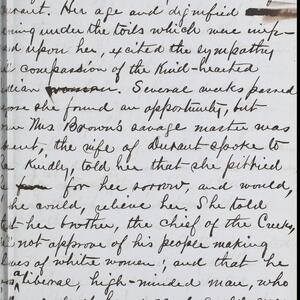 rant. Her age and dignified
ning under the toils which were imp-
ed upon her, excited the sympathy
compassion of the Kind-hearted
dian woman. Several weeks passed
ore she found an opportunity, but
Mrs Brown's savage master was
sent, the wife of Durant spoke to
Kindly, told her that she pittied
for her sorrow, and would,
he could, relieve her. She told
her brother, the chief of the Creeks,
not approve of his people making
ves of white women; and that he
a liberal, high-minded man, who